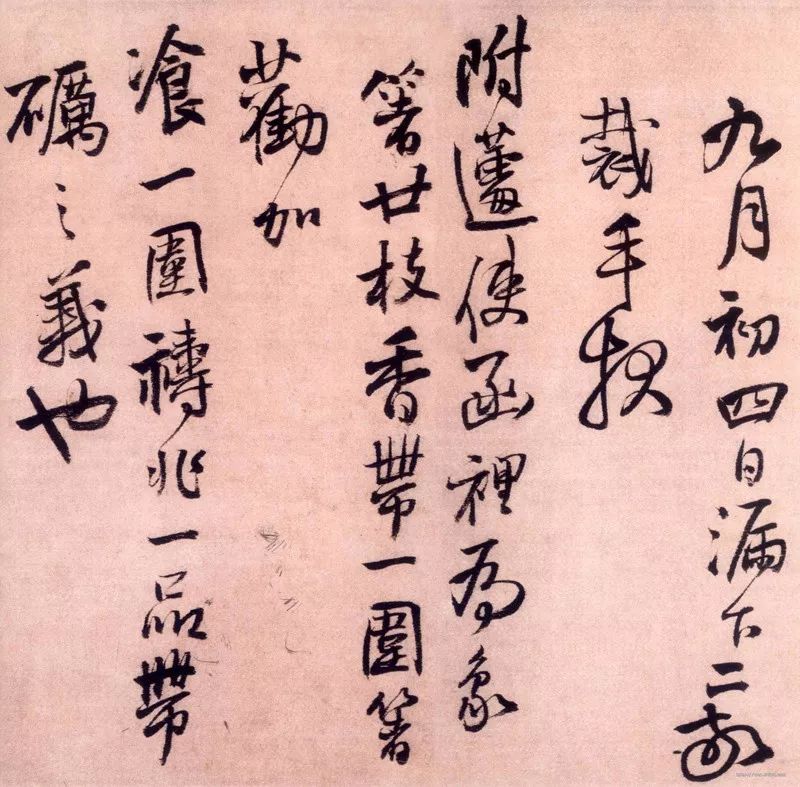 九月初四日漏下二刻
裁手狀
附蘧使函裡為象
箸廿枝香帶一圍箸
勸加
飡一圍禱兆一品帶
礪之義也